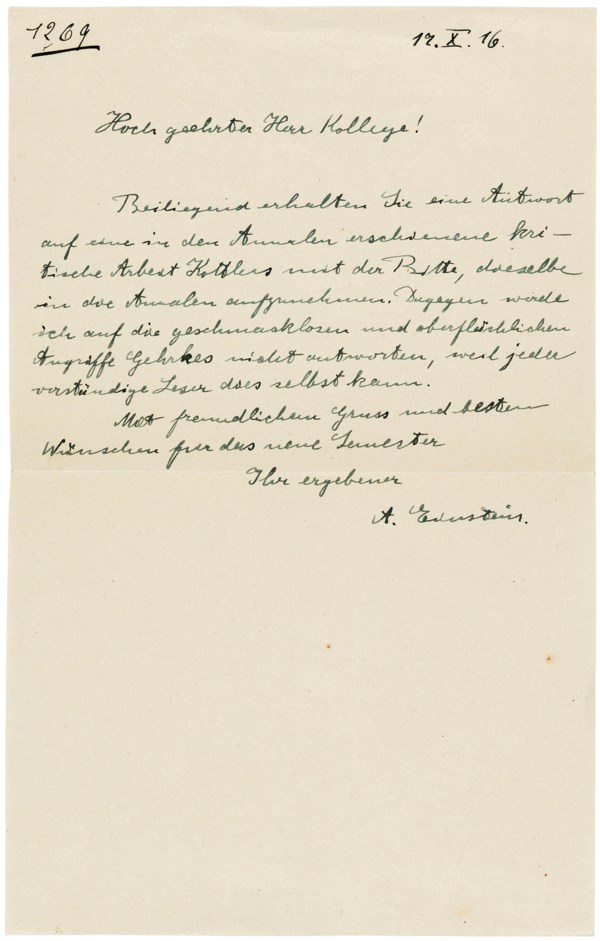 1269
17. X. 16.
Hoch geehrter Herr Kollege!
Beiliegend erhalten Sie eine Antwort
auf eine in den Annalen erschienene kri-
tische Arbeit Kottlers mit der Bitte, dieselbe
in die Annalen aufzunehmen. Dagegen werde
ich auf die geschmacklosen und oberflächlichen
Angriffe Gehrkes nicht antworten, weil jeder
verständige Leser dies selbst kann.
Mit freundlichem Gruss und besten
Wünschen für das neue Semester
Ihr ergebener
A. Einstein.